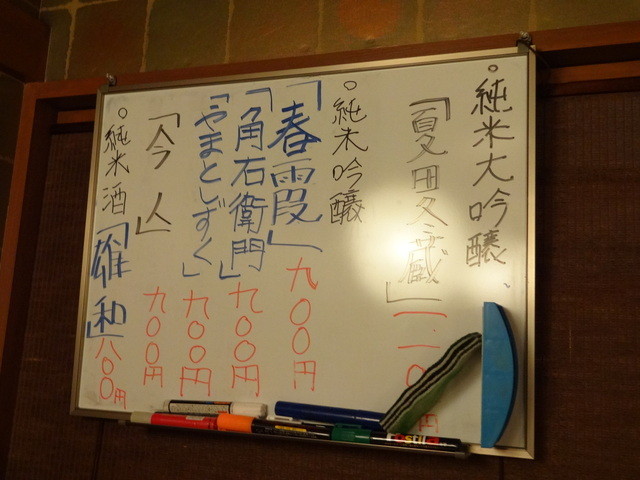 ○純米大吟醸
「夏田冬蔵」
○純米吟醸
「春霞」九〇〇円
「角右衛門」九〇〇円
「やまとしずく」九〇〇円
「今人」九〇〇円
○純米酒「雄和」八〇〇円